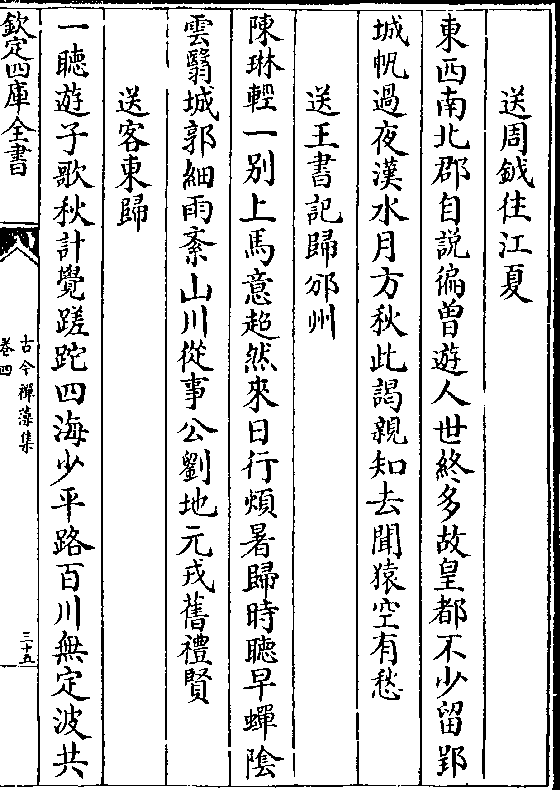 送周鉞住江夏
東西南北郡自説徧曽遊人世終多故皇都不少留郢
城帆過夜漢水月方秋此謁親知去聞猿空有愁
送王書記歸邠州
陳琳輕一别上馬意超然來日行煩暑歸時聽早蟬隂
雲翳城郭細雨紊山川從事公劉地元戎舊禮賢
送客東歸
一聽遊子歌秋計覺蹉跎四海少平路百川無定波共
欽定四庫全書
古今禪藻集
卷四
三十五